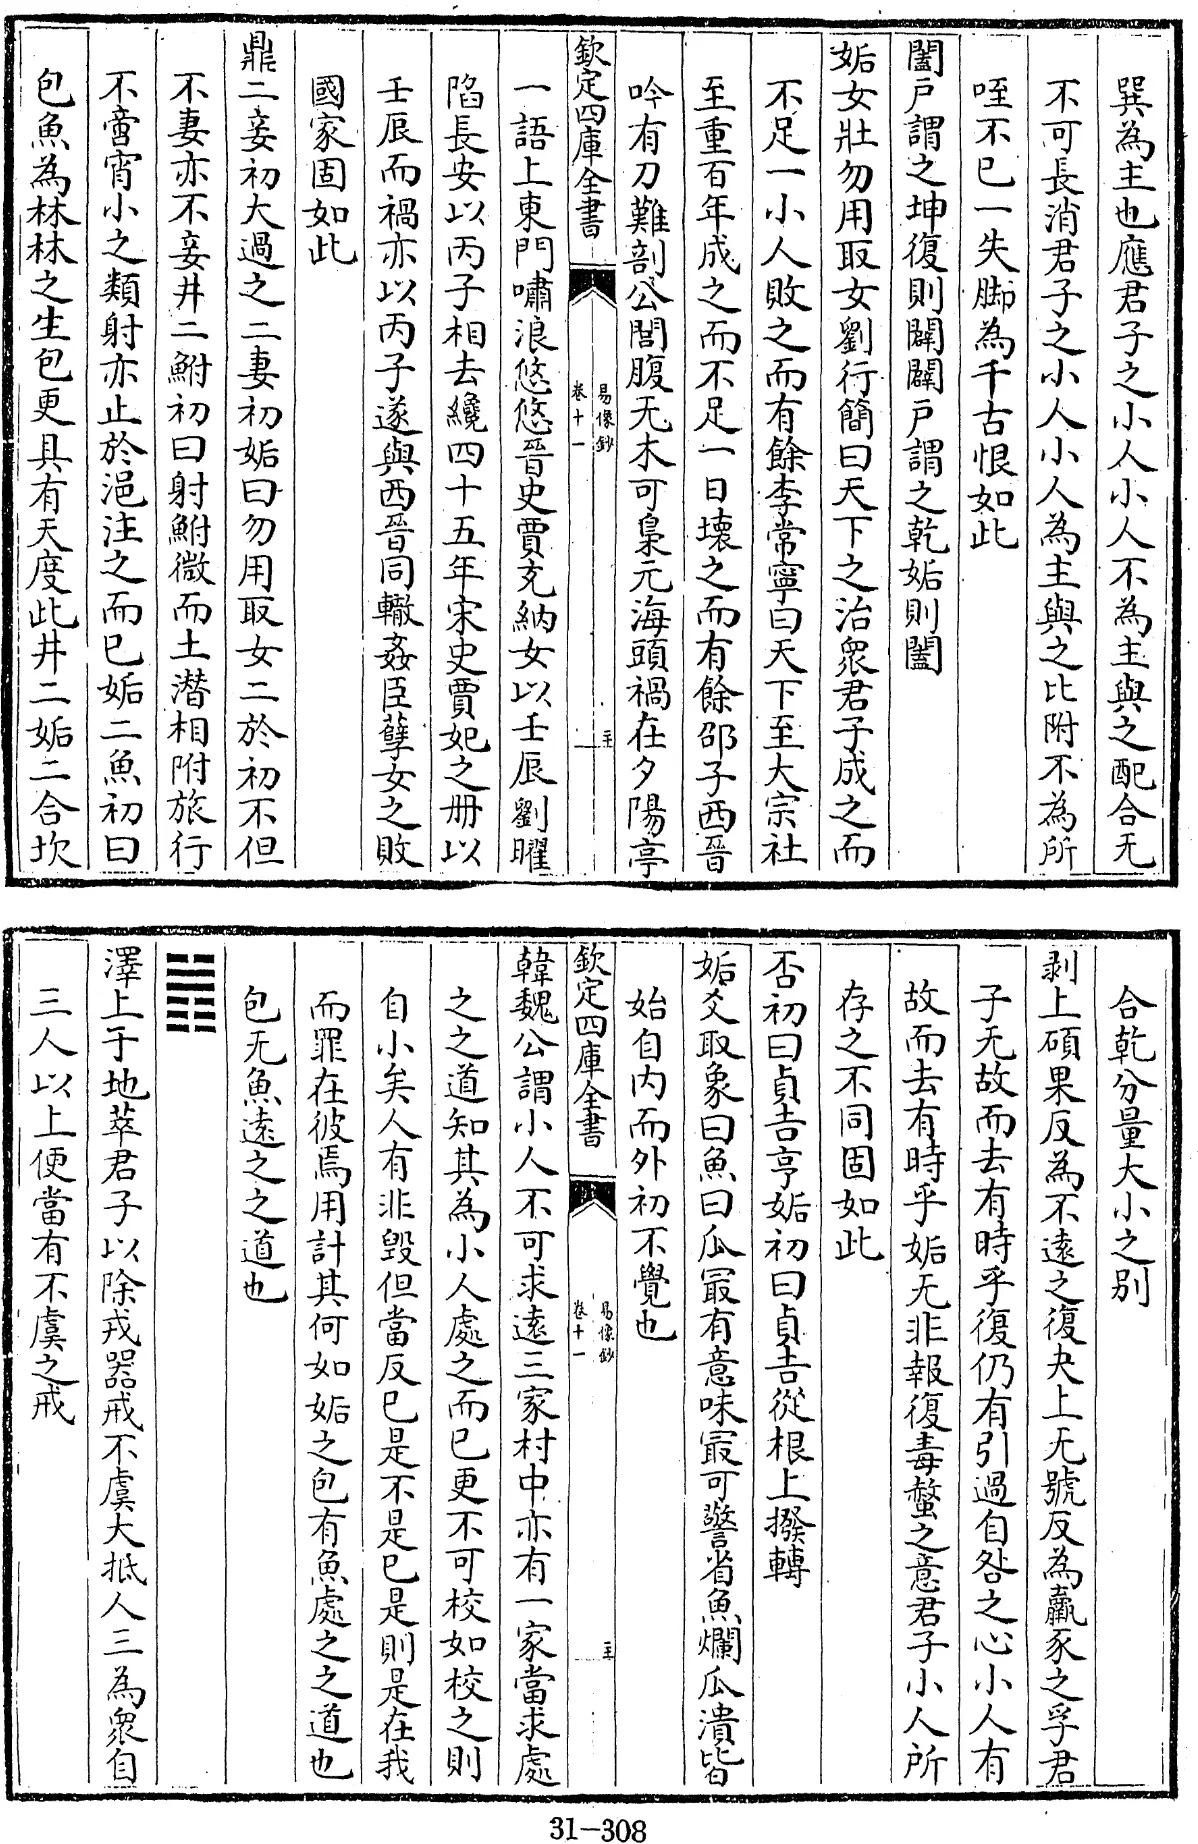 巽為主也應君子之小人小人不為主與之配合无
不可長消君子之小人小人為主與之比附不為所
咥不已一失脚為千古恨如此
闔戶謂之坤復則闢闢戶謂之乾姤則闔
姤女壯勿用取女劉行簡曰天下之治衆君子成之而
不足一小人敗之而有餘李常寧曰天下至大宗社
至重百年成之而不足一日壞之而有餘邵子西晉
吟有刀難剖公閭腹无木可梟元海頭禍在夕陽亭
欽定四庫全書
易像鈔
卷十一
一語上東門嘯浪悠悠晉史賈充納女以壬辰劉曜
陷長安以丙子相去纔四十五年宋史賈妃之册以
壬辰而禍亦以丙子遂與西晉同轍姦臣孽女之敗
國家固如此
鼎二妾初大過之二妻初姤曰勿用取女二於初不但
不妻亦不妾井二鮒初曰射鮒微而土潜相附旅行
不啻宵小之類射亦止於浥注之而已姤二魚初曰
包魚為林林之生包更具有天度此井二姤二合坎
合乾分量大小之别
剥上碩果反為不遠之復夬上无號反為羸豕之孚君
子无故而去有時乎復仍有引過自咎之心小人有
故而去有時乎姤无非報復毒螫之意君子小人所
存之不同固如此
否初曰貞吉亨姤初曰貞吉從根上撥轉
姤爻取象曰魚曰瓜㝡有意味㝡可警省魚爛瓜潰皆
始自内而外初不覺也
欽定四庫全書
易像鈔
卷十一
韓魏公謂小人不可求遠三家村中亦有一家當求處
之之道知其為小人處之而已更不可校如校之則
自小矣人有非毀但當反已是不是已是則是在我
而罪在彼焉用計其何如姤之包有魚處之之道也
包无魚遠之之道也
䷬
澤上于地萃君子以除戎器戒不虞大抵人三為衆自
三人以上便當有不虞之戒
31-308